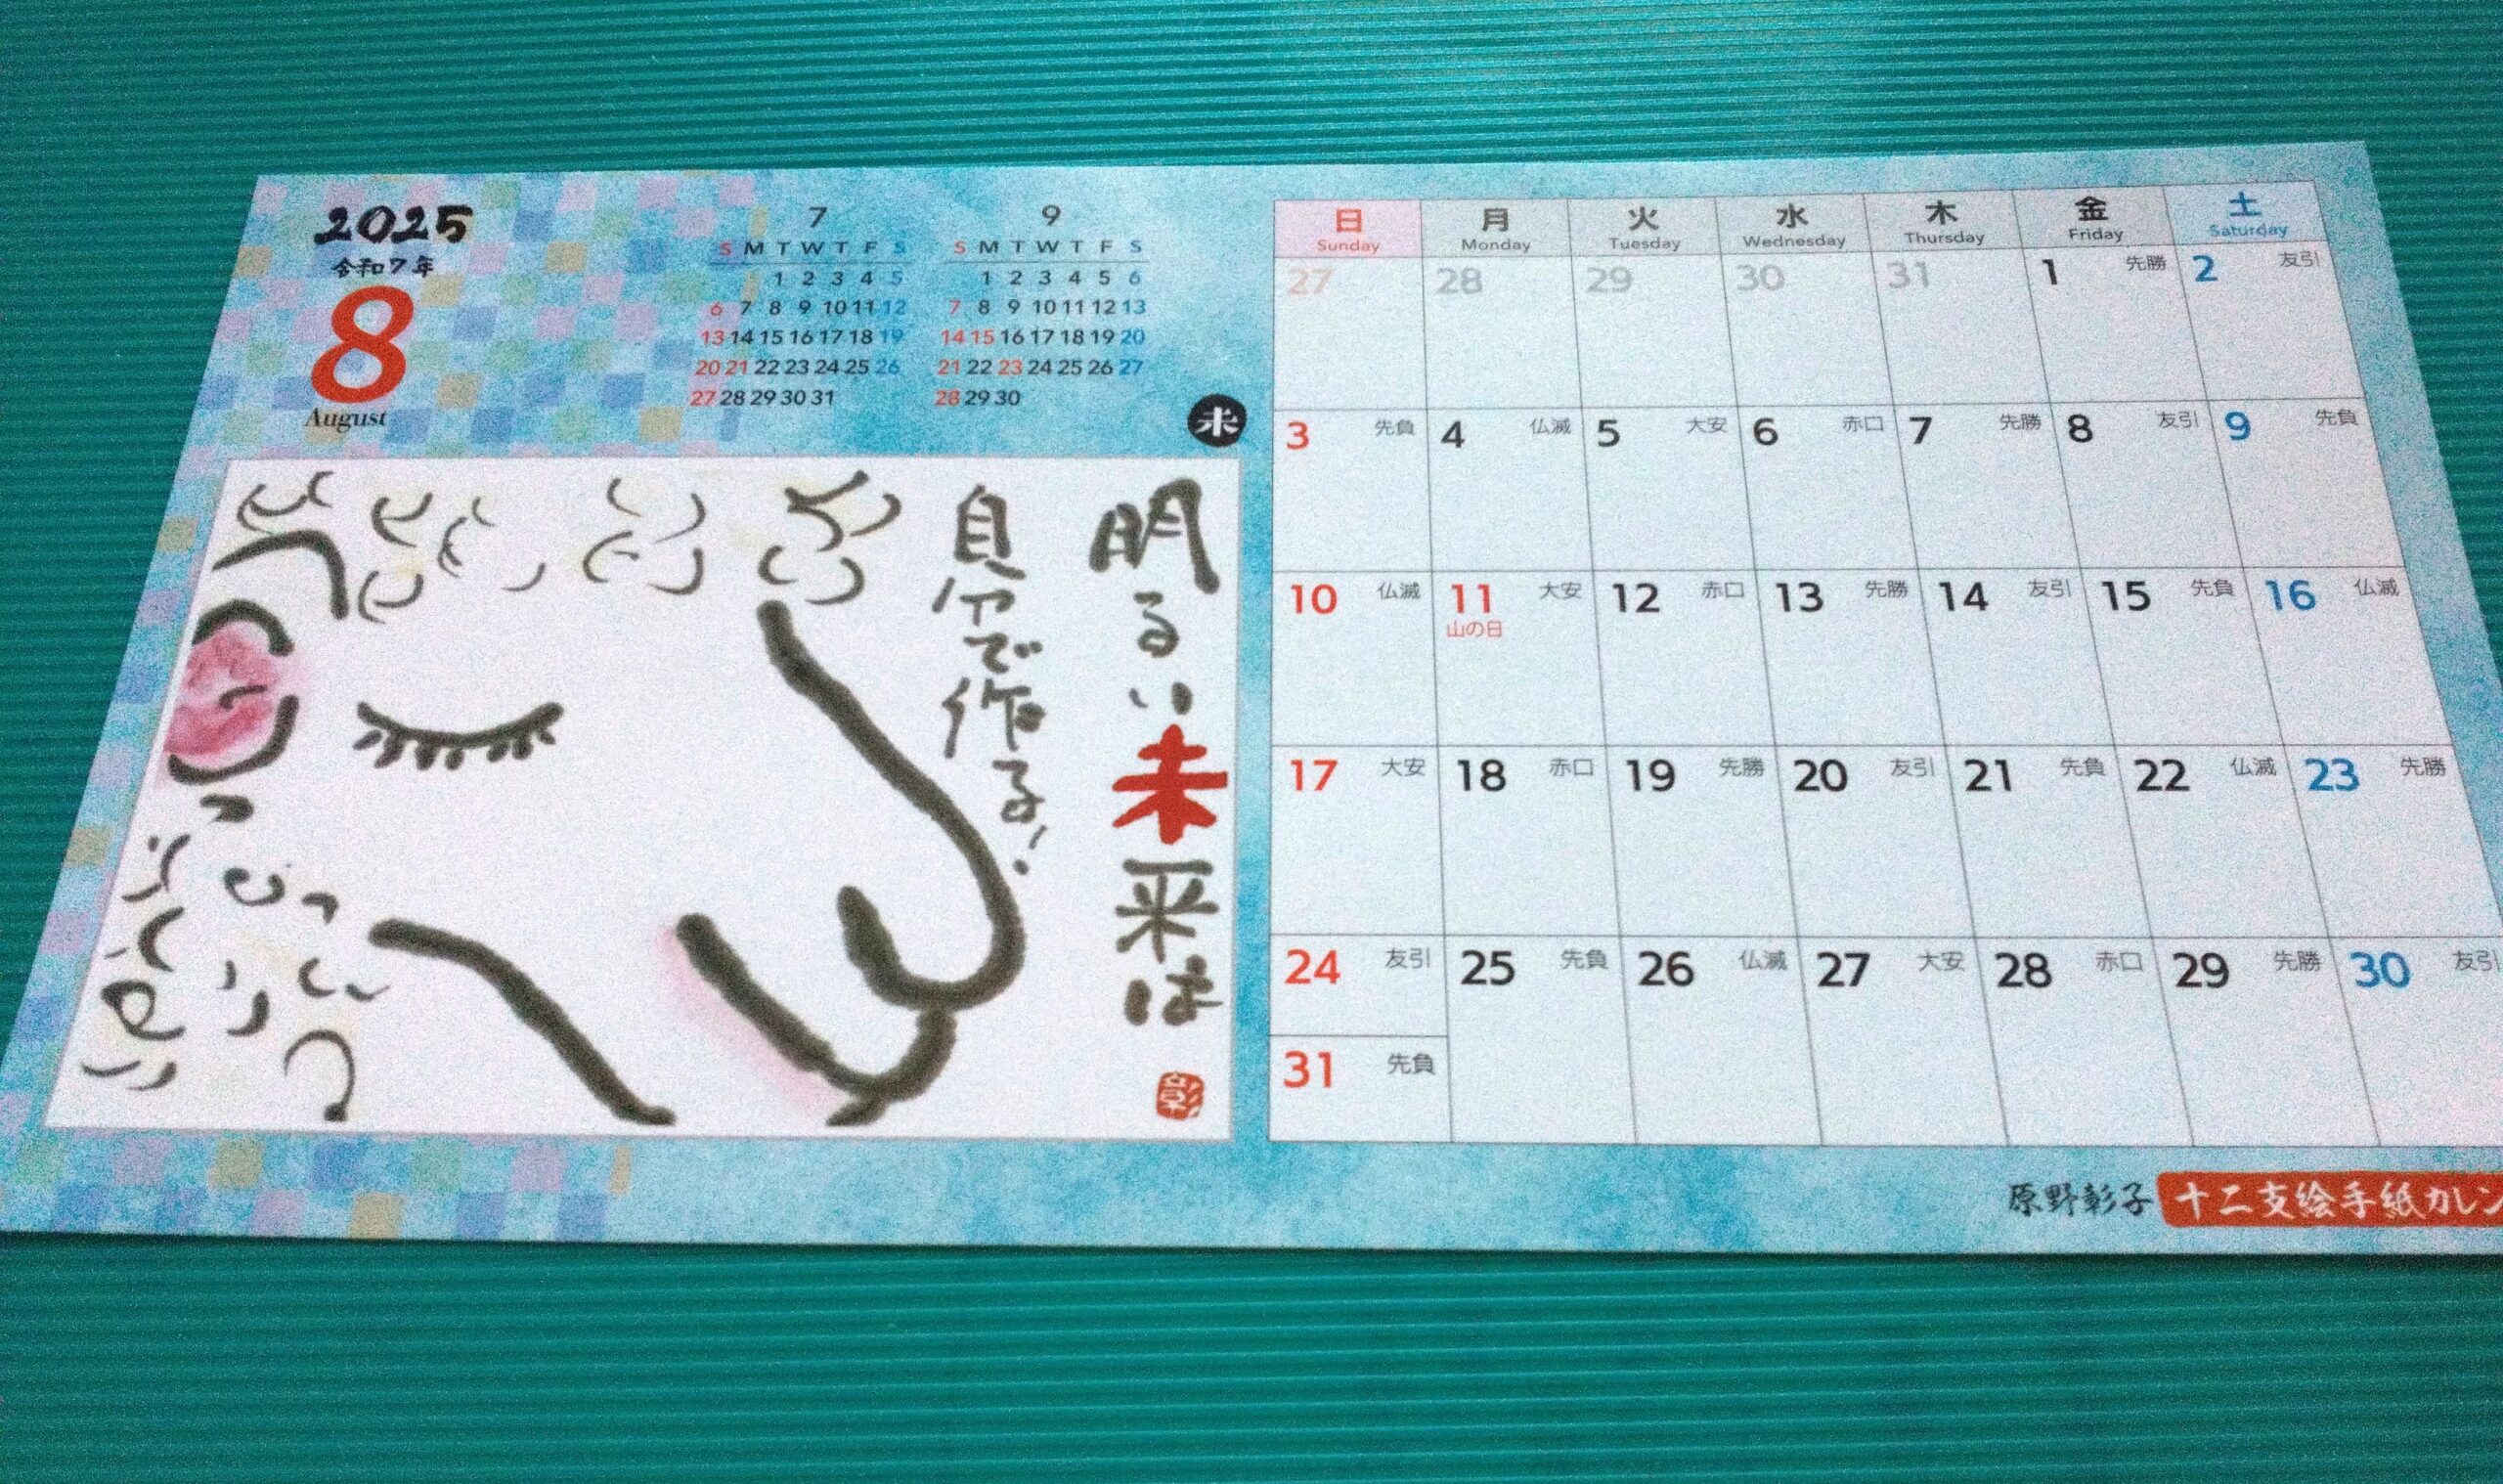 2025
令和7年
8
August
7
S M T W T F S
1 2 3 4 5
6 7 8 9 10 11 12
13 14 15 16 17 18 19
20 21 22 23 24 25 26
27 28 29 30 31
9
S M T W T F S
1 2 3 4 5 6
7 8 9 10 11 12 13
14 15 16 17 18 19 20
21 22 23 24 25 26 27
28 29 30
未
明るい未来は
自分で作る!
彰
日 月 火 水 木 金 土
Sunday Monday Tuesday Wednesday Thursday Friday Saturday
27 28 29 30 31 1 先勝 2 友引
3 先負 4 仏滅 5 大安 6 赤口 7 先勝 8 友引 9 先負
10 仏滅 11 大安 12 赤口 13 先勝 14 友引 15 先負 16 仏滅
山の日
17 大安 18 赤口 19 先勝 20 友引 21 先負 22 仏滅 23 先勝
24 友引 25 先負 26 仏滅 27 大安 28 赤口 29 先勝 30 友引
31 先負
原野彰子 十二支絵手紙カレン